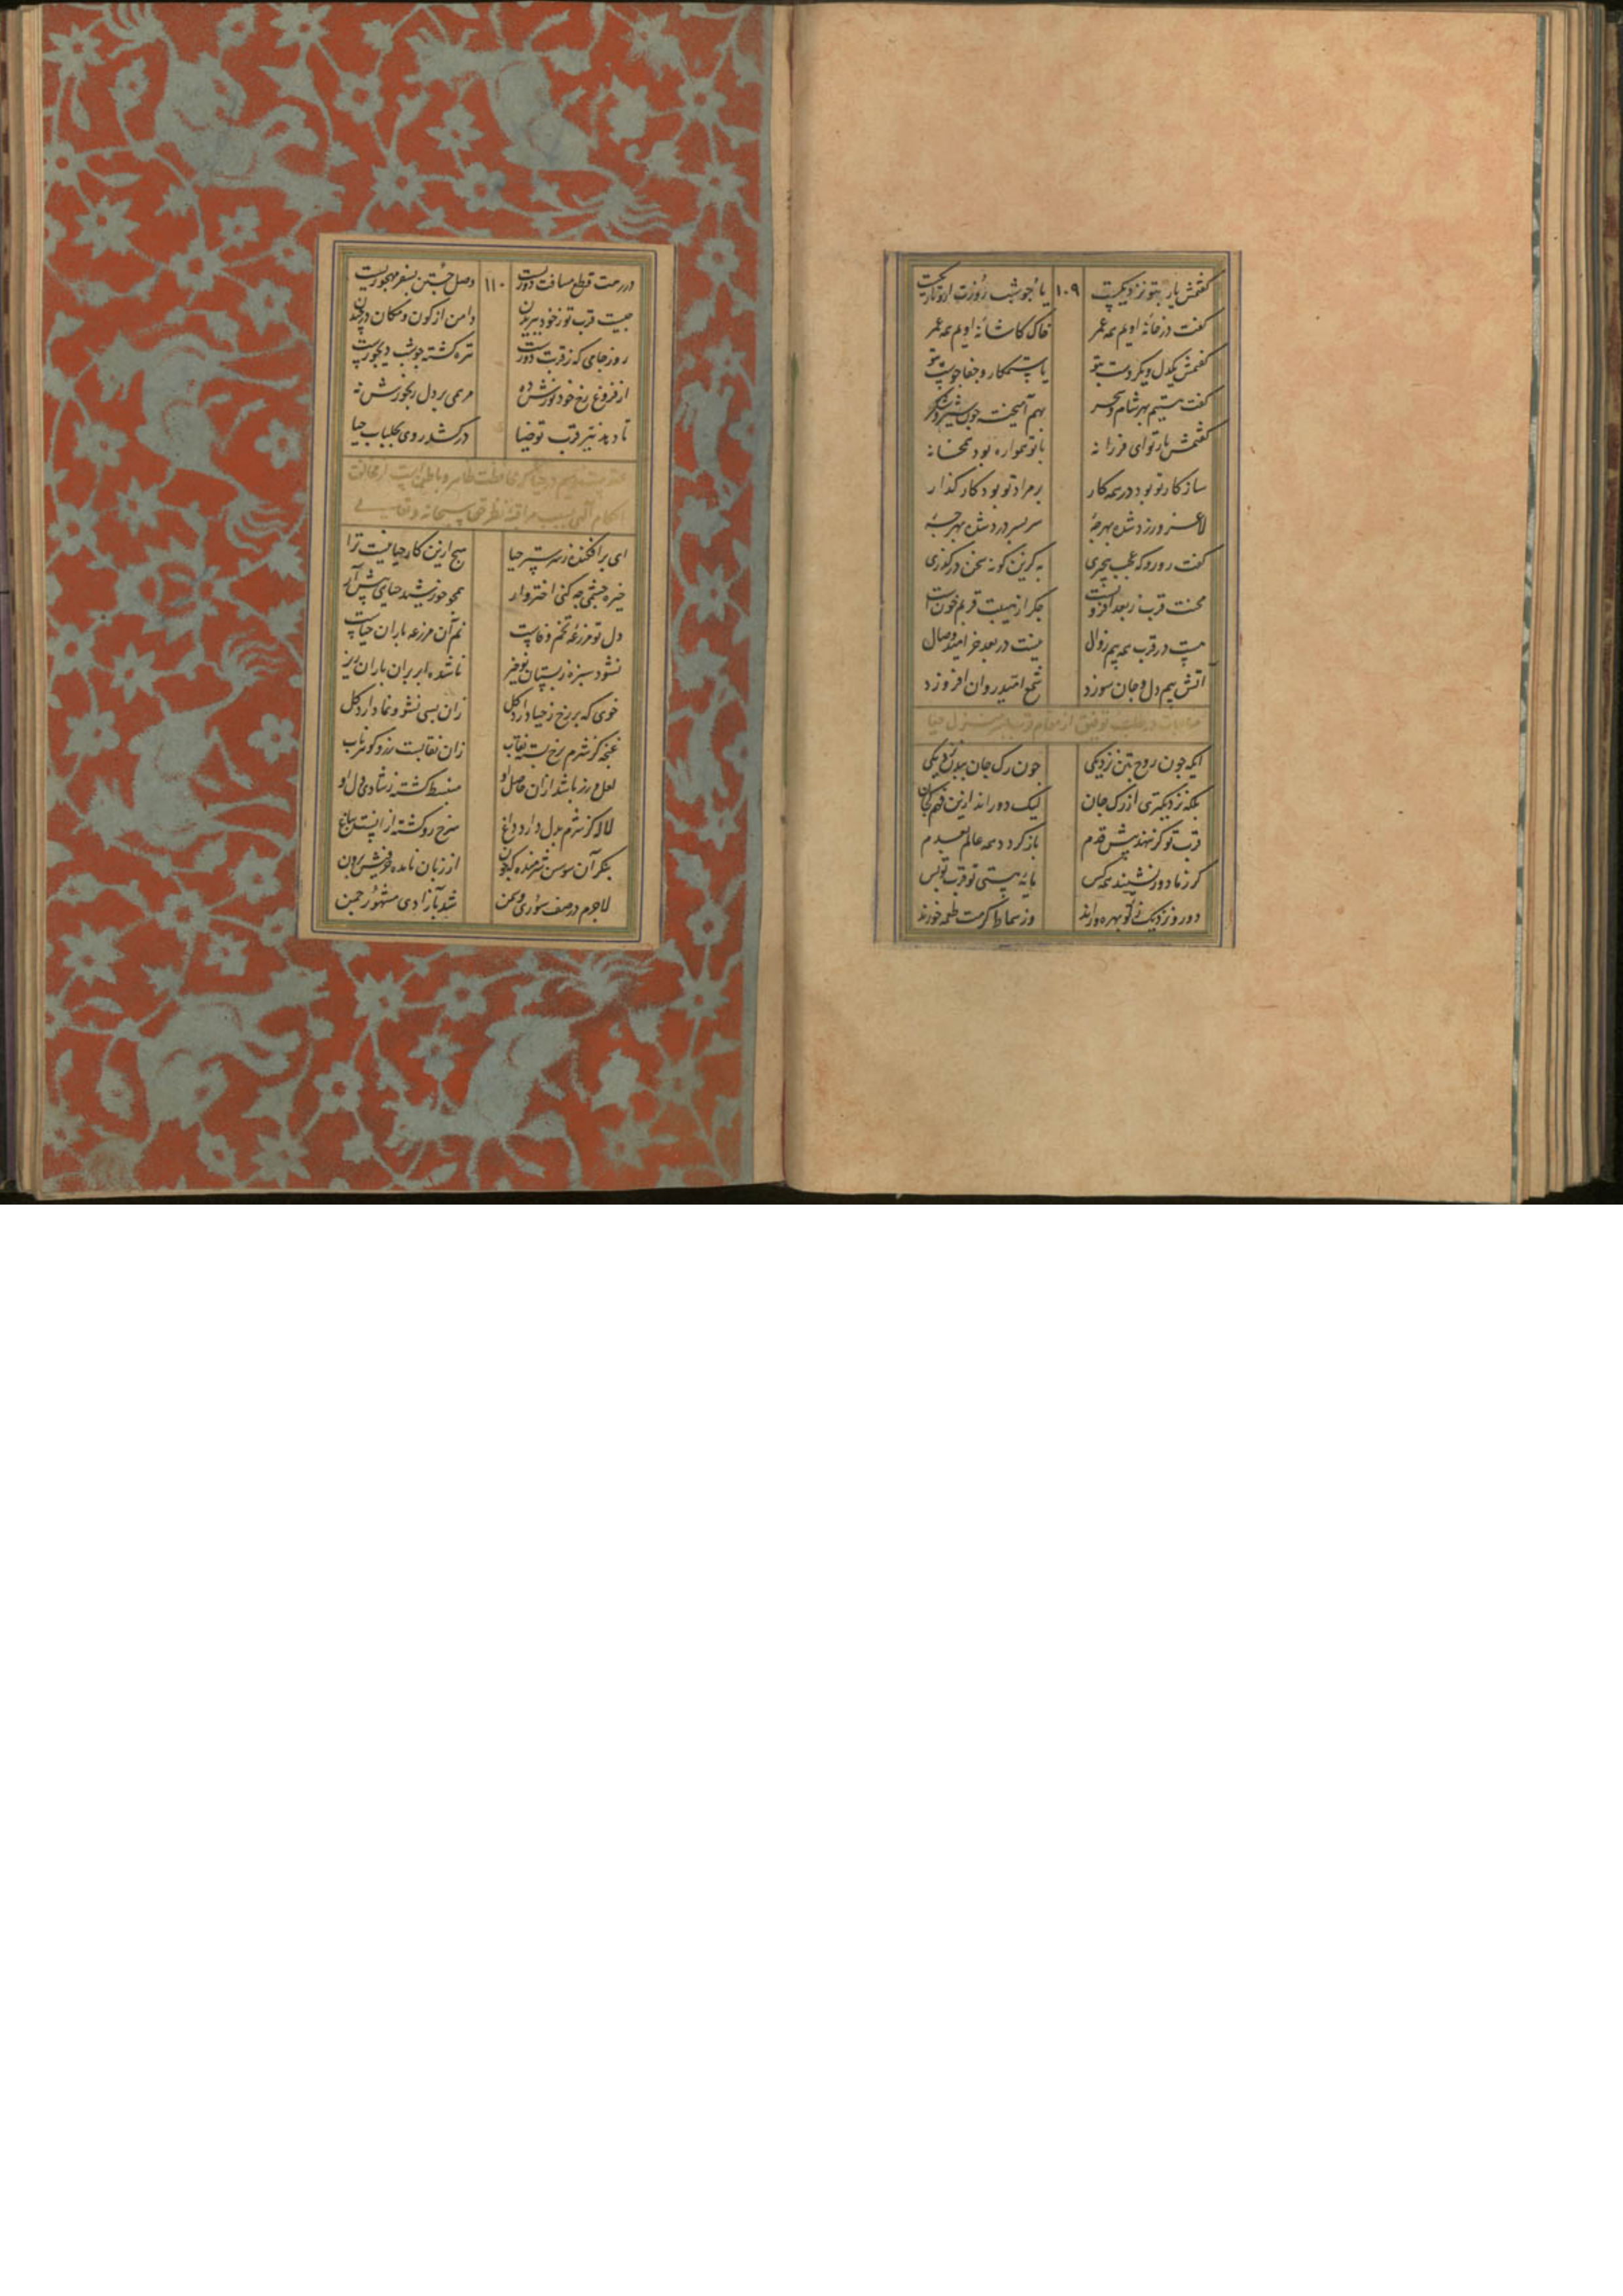 کفتمش یار بتو نزدیکست ۱۰۹ یا چو شب روزت ازو تاریکست
کفت در خانه اویم همه عمر خاک کاشانه اویم همه عمر
کفتمش یکدل و یکروست بتو یا ستمکار و جفاجوست بتو
کفت هستیم بهر شام و سحر بهم آمیخته چون شیر و شکر
کفتمش یار تو ای فرزانه با تو همواره بود همخانه
سازکار تو بود در همه کار بر مراد تو بود کار کذار
لاغر و زرد شده بهر چه سر بسر درد شده بهر چه
کفت رو رو که عجب بیخبری به کزین کونه سخن درکذری
محنت قرب ز بعد افزونست جکر از هیبت قربم خونست
هست در قرب همه بیم زوال نیست در بعد جز امید وصال
آتش بیم دل و جان سوزد شمع امید روان افروزد
مناجات در طلب توفیق از مقام قرب بمنزل حیا
ایکه چون روح بتن نزدیکی چون رک جان ببدن نزدیکی
بلکه نزدیکتری از رک جان لیک دورند ازین فهم کسان
قرب تو کر ننهد پیش قدم باز کردد همه عالم بعدم
کر ز ما دور نشیند همه کس مایه هستی تو قرب تو بس
دور و نزدیک ز تو بهره‌ورند وز سماط کرمت طعمه خورند
در رهت قطع مسافت دوریست ۱۱۰ وصل جستن بسفر مهجوریست
چیست قرب تو ز خود ببریدن دامن از کون و مکان درچیدن
روز جامی که ز قربت دورست تیره کشته چو شب دیجورست
از فروغ رخ خود نورش ده مرهمی بر دل رنجورش نه
تا دهد نیر قرب تو ضیا درکشد روی بجلباب حیا
عقد بیستم در حیا که محافظت ظاهر و باطن است از مخالفت
احکام الهی بسبب مراقبه نظر حق سبحانه و تعالی
ای برافکنده ز سر ستر حیا هیچ ازین کار حیا نیست ترا
خیره چشمی چه کنی اختروار همچو خورشید حیای پیش آر
دل تو مزرعه تخم وفاست نم آن مزرعه باران حیاست
نشود سبزه ز بستان نوخیز ناشده ابر بر آن باران ریز
خوی که بر رخ ز حیا دارد کل زان بسی نشو و نما دارد کل
غنچه کز شرم برخ بست نقاب زان نقابست
لعل و زر باشد ازان حاصل او منبسط کشته ز شادی دل او
لاله کز شرم بدل دارد داغ سرخ رو کشته
بنکر آن سوسن شرمنده از زبان نامده حرفیش برون
لاجرم در صف سوری و سمن شد بآزادی مشهور چمن